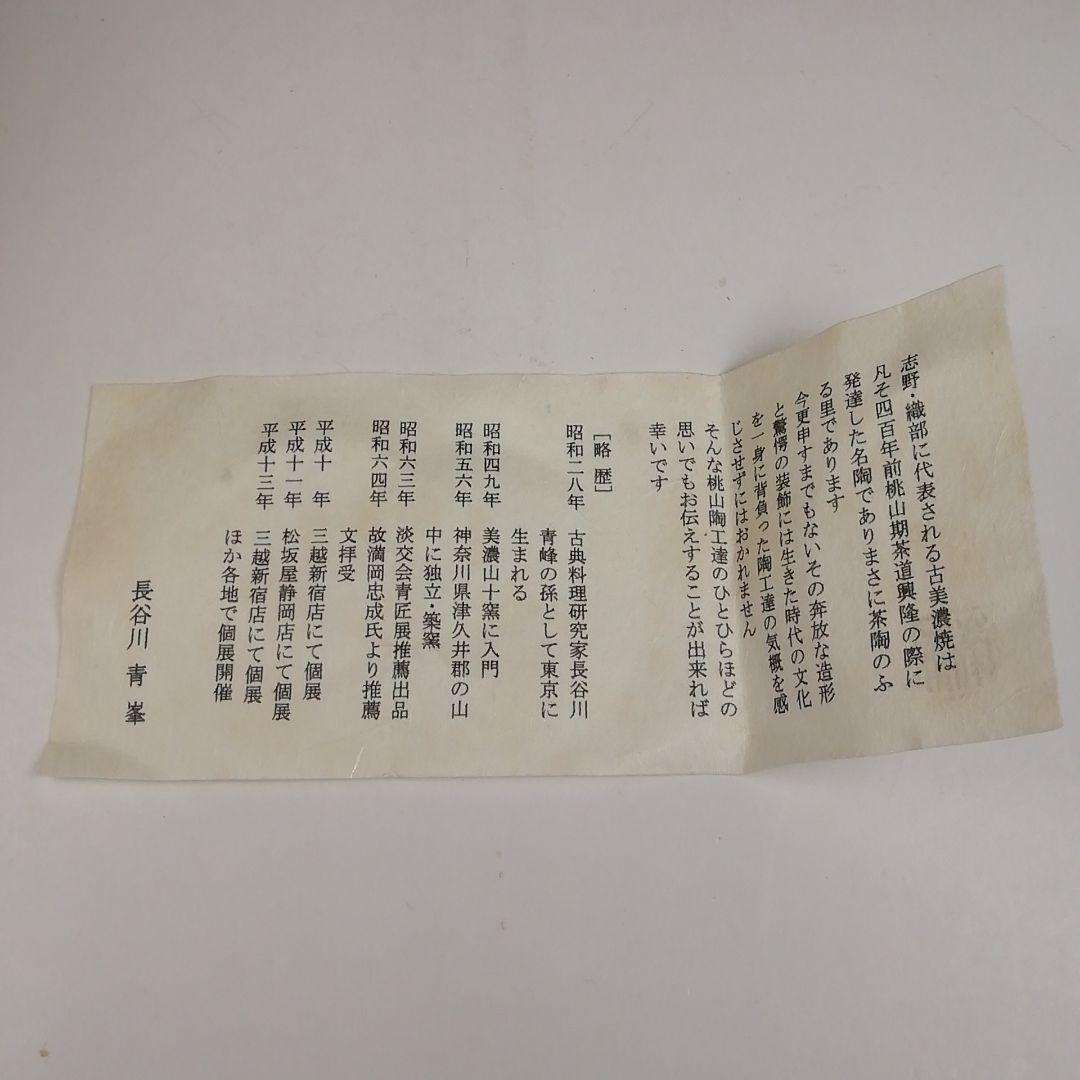 志野・織部に代表される古美濃焼は
凡そ四百年前桃山期茶道興隆の際に
発達した名陶でありまさに茶陶のふ
る里であります
今更申すまでもないその奔放な造形
と驚愕の装飾には生きた時代の文化
を一身に背負った陶工達の気概を感
じさせずにはおかれません
そんな桃山陶工達のひとひらほどの
思いでもお伝えすることが出来れば
幸いです
［略歴］
昭和二八年 古典料理研究家長谷川
青峰の孫として東京に
生まれる
昭和四九年 美濃山十窯に入門
昭和五六年 神奈川県津久井郡の山
中に独立・築窯
昭和六三年 淡交会青匠展推薦出品
昭和六四年 故満岡忠成氏より推薦
文拝受
平成十 年 三越新宿店にて個展
平成十一年 松坂屋静岡店にて個展
平成十三年 三越新宿店にて個展
ほか各地で個展開催
長谷川 青 峯